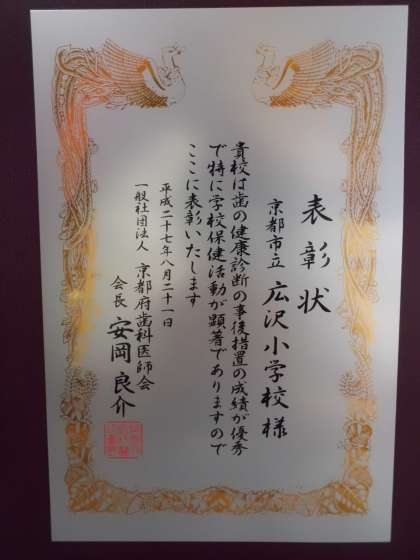 表彰状
京都市立 広沢小学校様
貴校は歯の健康診断の事後措置の成績が優秀
で特に学校保健活動が顕著でありますので
ここに表彰いたします
平成二十七年八月二十一日
一般社団法人 京都府歯科医師会
会長 安岡良介